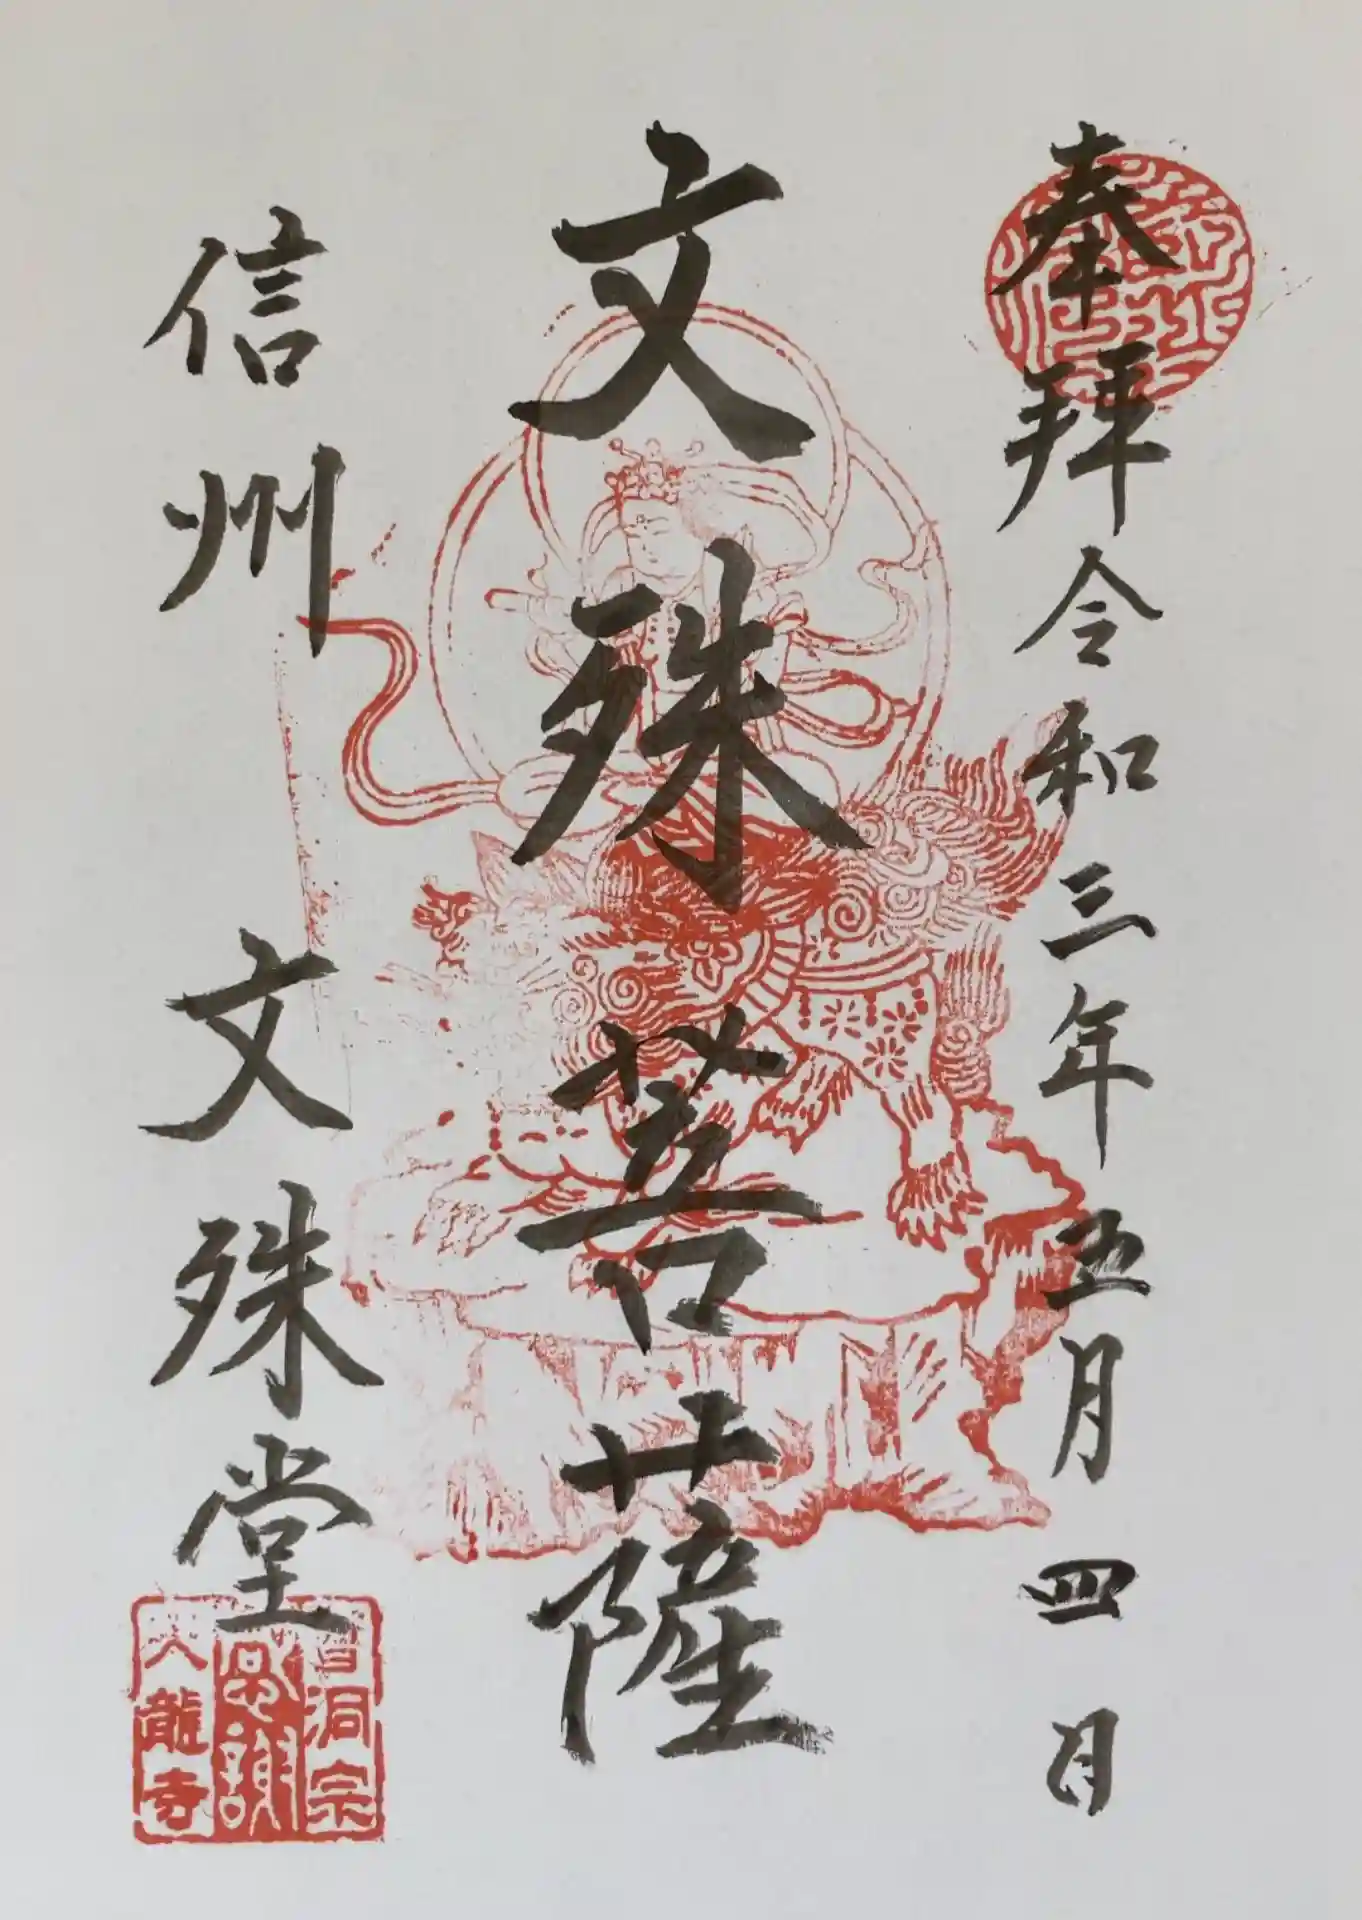 奉拝 令和三年五月四日
文殊菩薩
信州 文殊堂
曹洞宗
龍寺